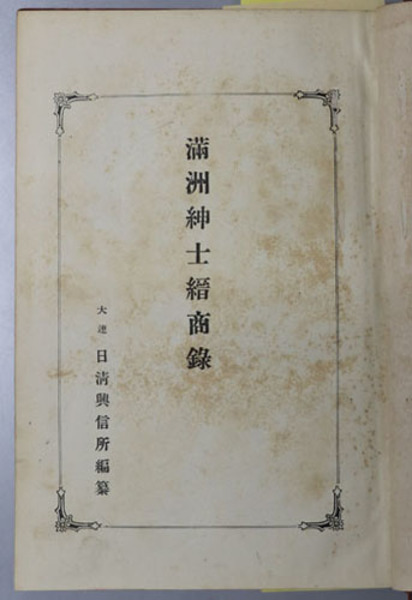 滿洲紳士縉商錄
大連 日清興信所編纂